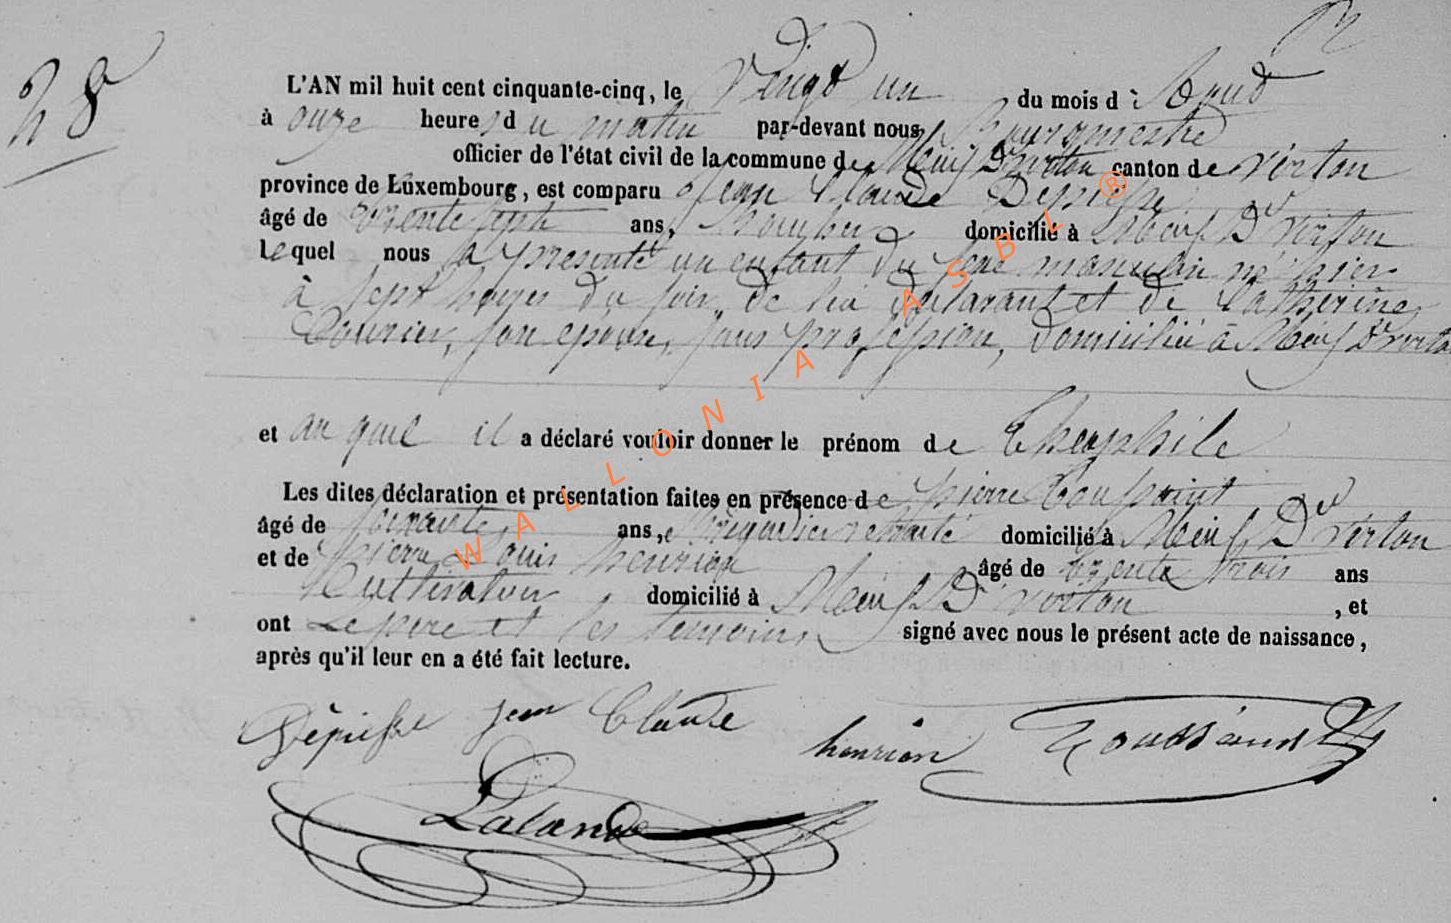 28
L'AN mil huit cent cinquante-cinq, le Vingt un du mois d'Aout
à onze heures du matin par-devant nous Bourgmestre
officier de l'état civil de la commune de Meix Dt virton canton de virton
province de Luxembourg, est comparu Jean Claude Depiesse
âgé de trente sept ans, domicilié à Meix Dt Virton
lequel nous a presenté un enfant du sexe masculin né hier
à sept heures du soir de lui déclarant et de Catherine
Courier, son epouse, sans profession, domiciliée à Meix Dt virton
et auquel il a déclaré vouloir donner le prénom de Théophile
Les dites déclaration et présentation faites en présence de pierre Toussaint
âgé de soixante ans, Brigadier retraité domicilié à Meix Dt virton
et de pierre Louis henrion âgé de trente trois ans
Cultivateur domicilié à Meix Dt virton, et
ont Le père et les temoins signé avec nous le présent acte de naissance,
après qu'il leur en a été fait lecture.
Dépiesse jean Claude henrion Toussaint
Lalande
WALLONIA ASBL ®